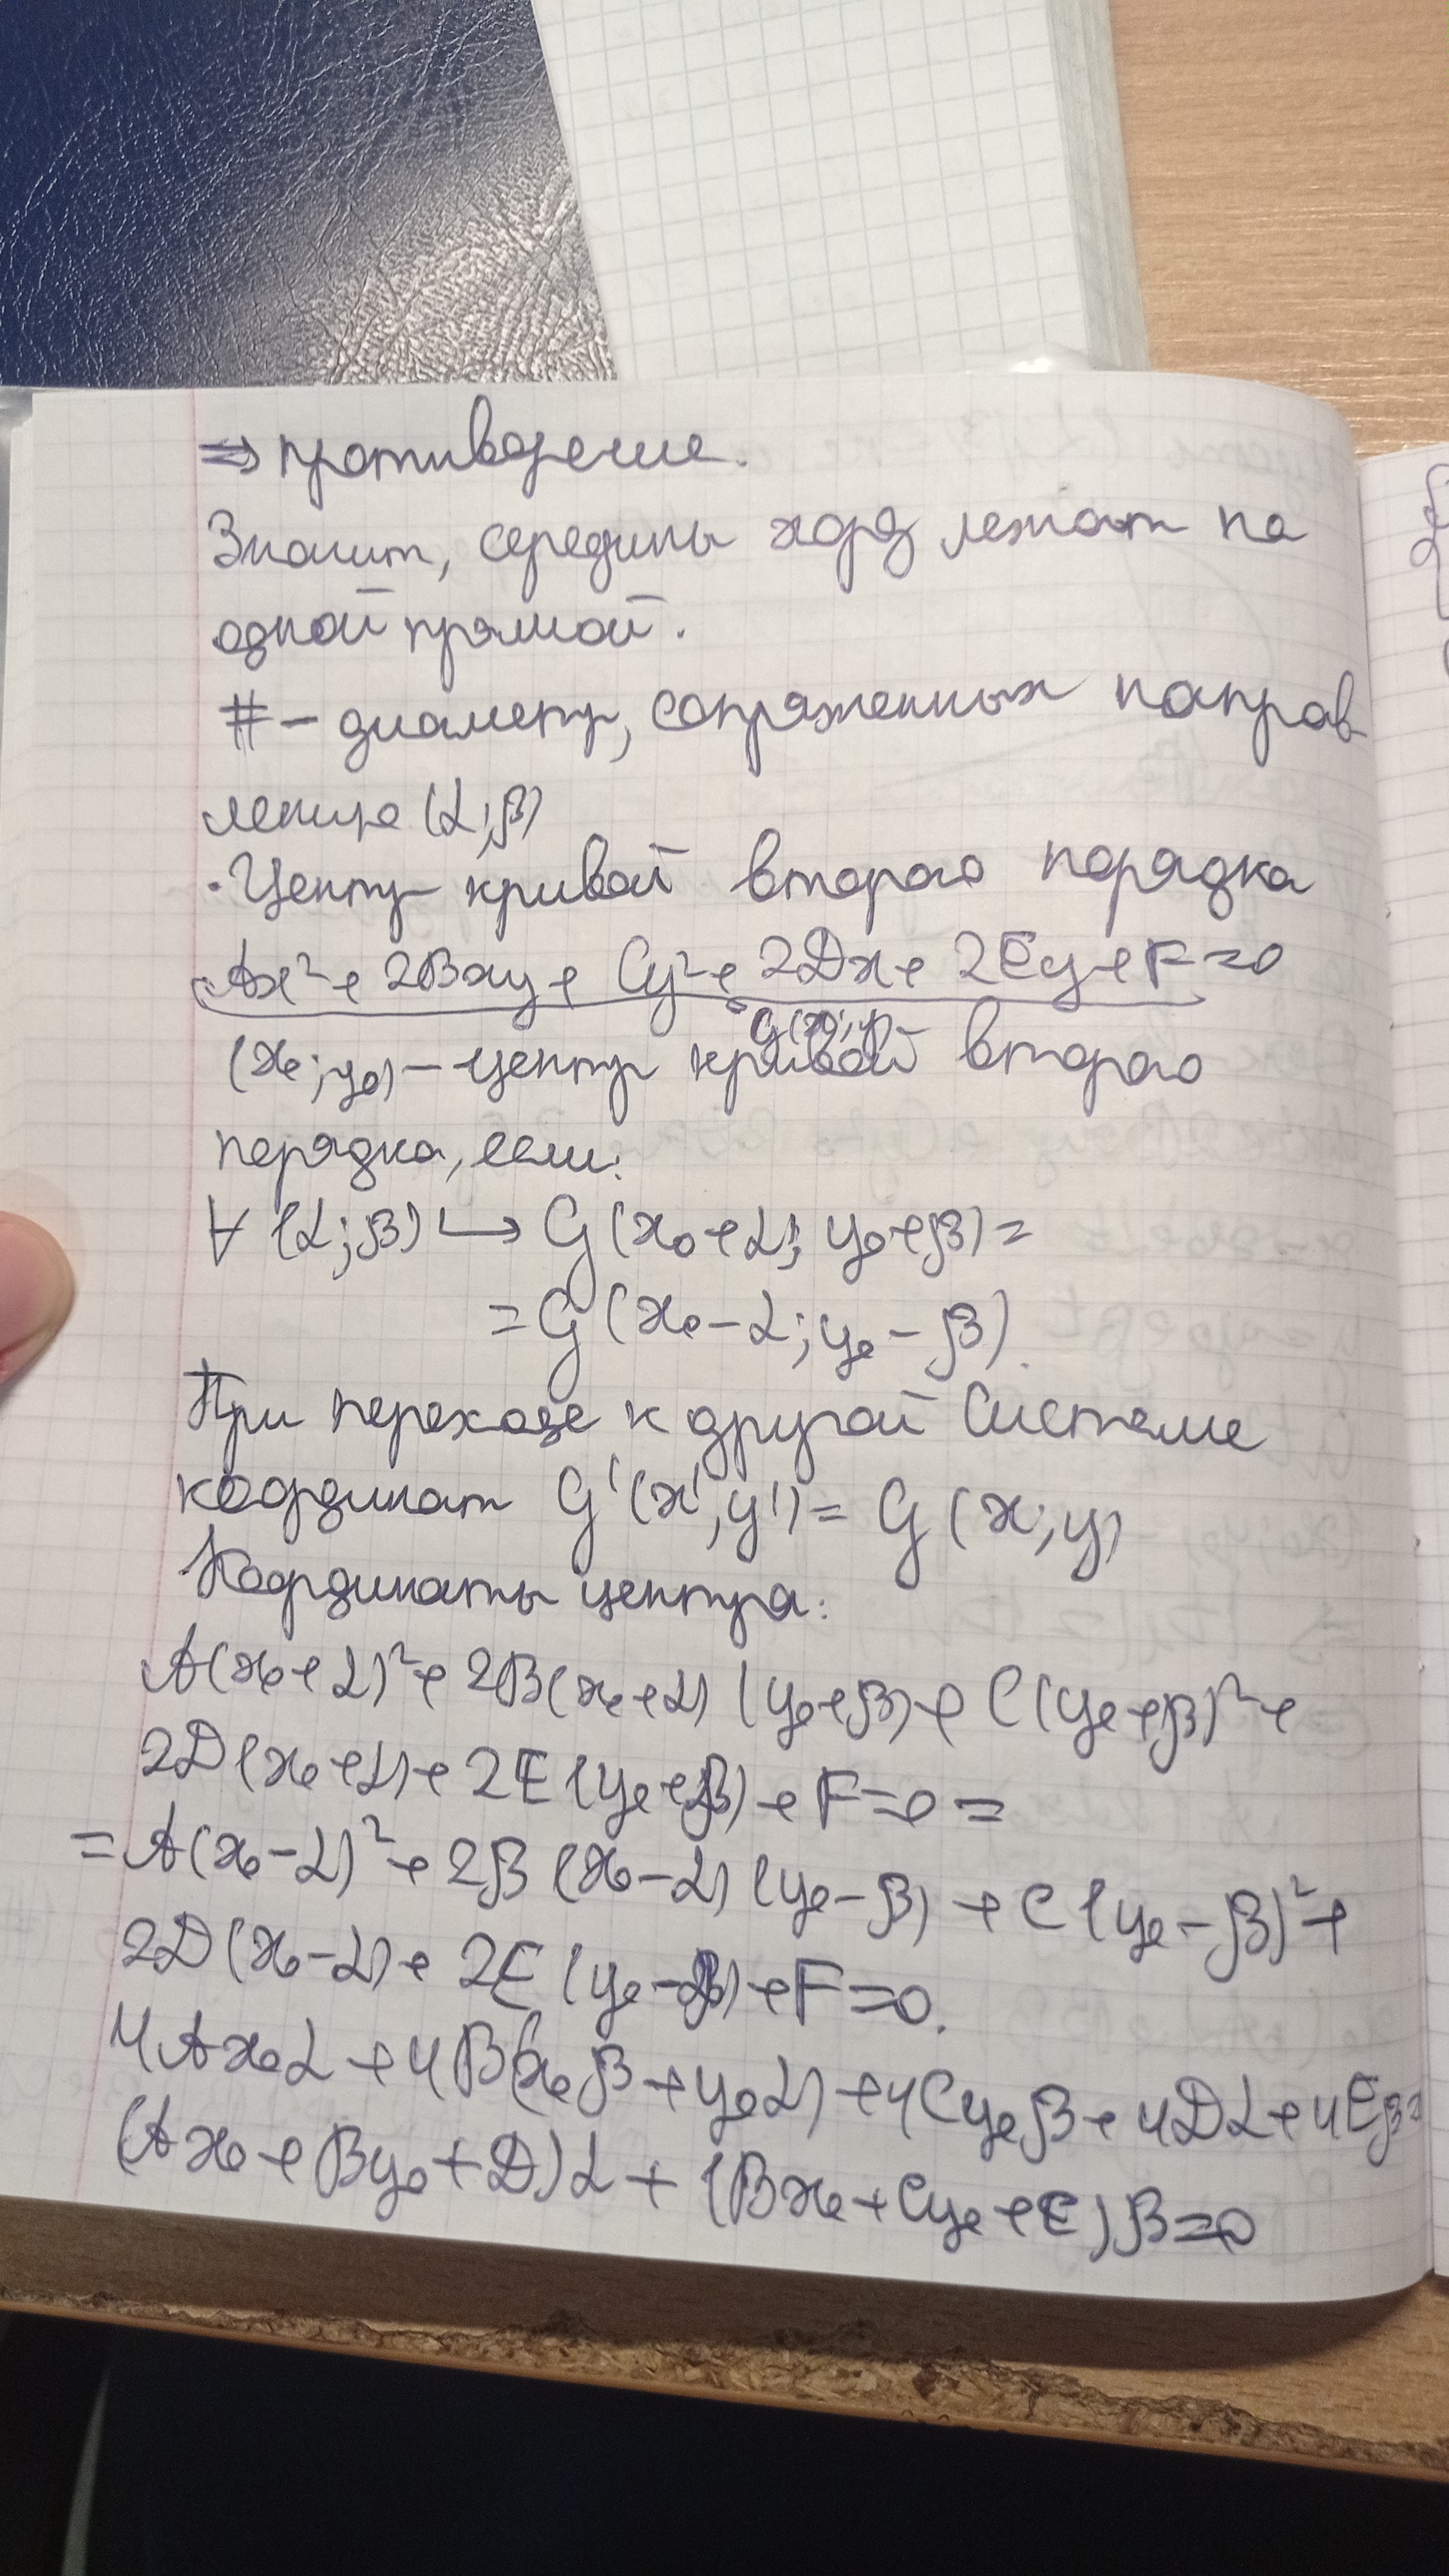 ⇒ противоречие.
Значит, середины хорд лежат на
одной прямой.
# – диаметр, сопряженных направ
лению (α;β)
· Центр кривой второго порядка
Ax² + 2Bxy + Cy² + 2Dx + 2Ey + F = 0
G(x;y) –
(x₀;y₀) – центр кривой второго
порядка, если:
∀ (α;β) ↪ G(x₀+α; y₀+β) =
= G(x₀–α; y₀–β).
При переходе к другой системе
координат G'(x', y') = G(x;y)
Координаты центра:
A(x₀+α)² + 2B(x₀+α)(y₀+β) + C(y₀+β)² +
2D(x₀+α) + 2E(y₀+β) + F = 0 =
= A(x₀–α)² + 2B(x₀–α)(y₀–β) + C(y₀–β)² +
2D(x₀–α) + 2E(y₀–β) + F = 0.
4Ax₀α + 4B(x₀β + y₀α) + 4Cy₀β + 4Dα + 4Eβ =
(Ax₀ + By₀ + D)α + (Bx₀ + Cy₀ + E)β = 0